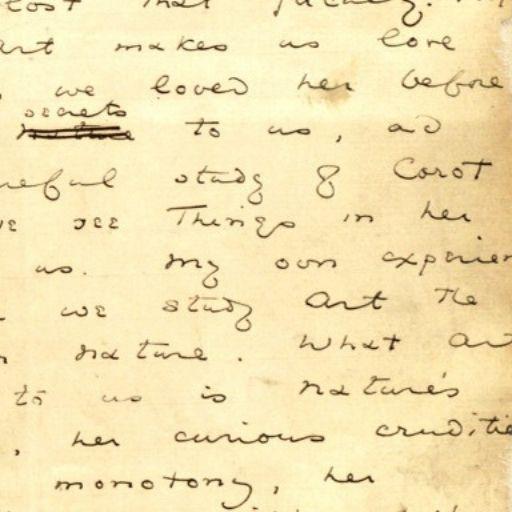 lost that faculty. My
art makes us love
we loved her before
secrets
to us, ad
reful study of Corot
we see Things in her
us. my own experien
we study art The
nature. What Art
to us is nature's
, her curious cruditie
monotony, her